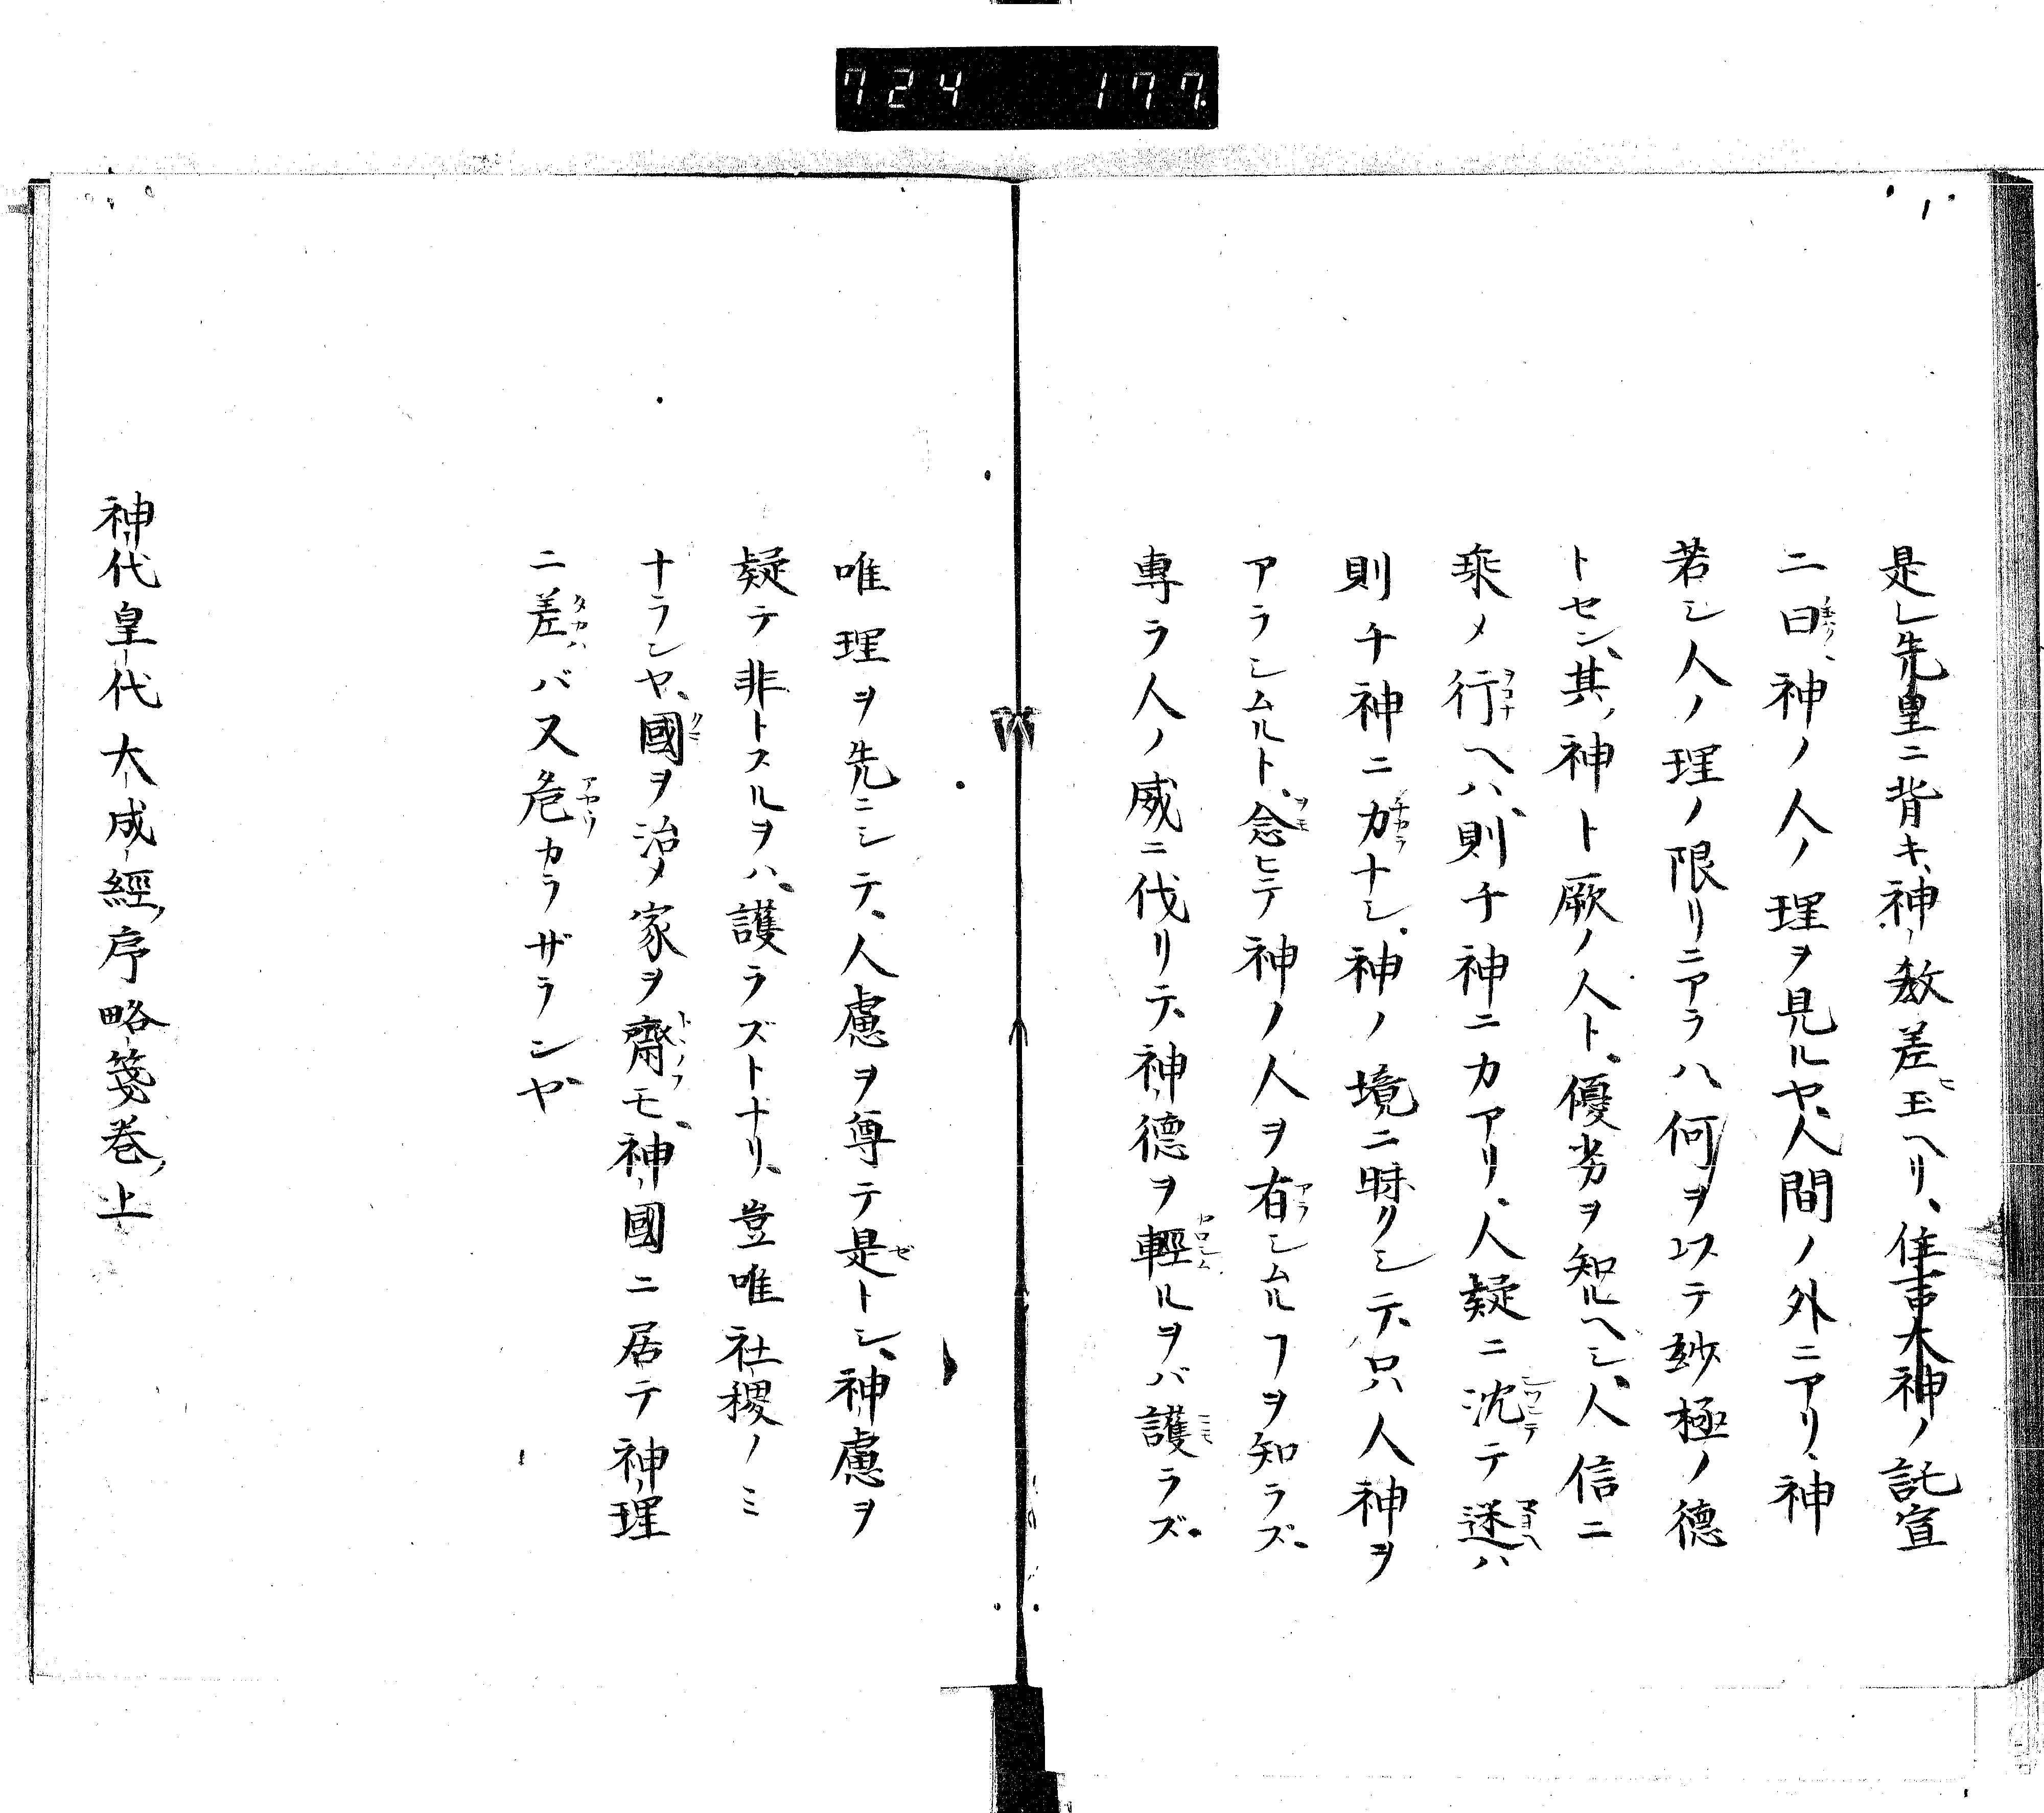 724 177.
是レ先皇ニ背キ、神ノ教差ヒ玉ヘリ、住吉大神ノ託宣
ニ曰ク、神ノ人ノ理ヲ見ルヤ、人間ノ外ニアリ、神
若シ人ノ理ノ限リニアラハ何ヲ以テ玅極ノ德
トセン、其ノ神ト厥ノ人ト、優劣ヲ知ルヘシ、人信ニ
乘メ行ヘハ、則チ神ニカアリ、人疑ニ沈テ迷ハ
則チ神ニ力ナシ、神ノ境ニクシテ、只ハ人神ヲ
アラシムルト、念ヒテ神ノ人ヲ有シムルヿヲ知ラズ、
專ラ人ノ威ニ伐リテ、神德ヲ輕ルヲバ護ラズ、
唯理ヲ先ニシテ、人慮ヲ尊テ是トシ、神慮ヲ
疑テ非トスルヲハ、護ラズトナリ、豈唯社稷ノミ
ナランヤ、國ヲ治メ家ヲ齊モ、神國ニ居テ神理
ニ差バス危カラザランヤ
神代皇代大成經序略箋卷上